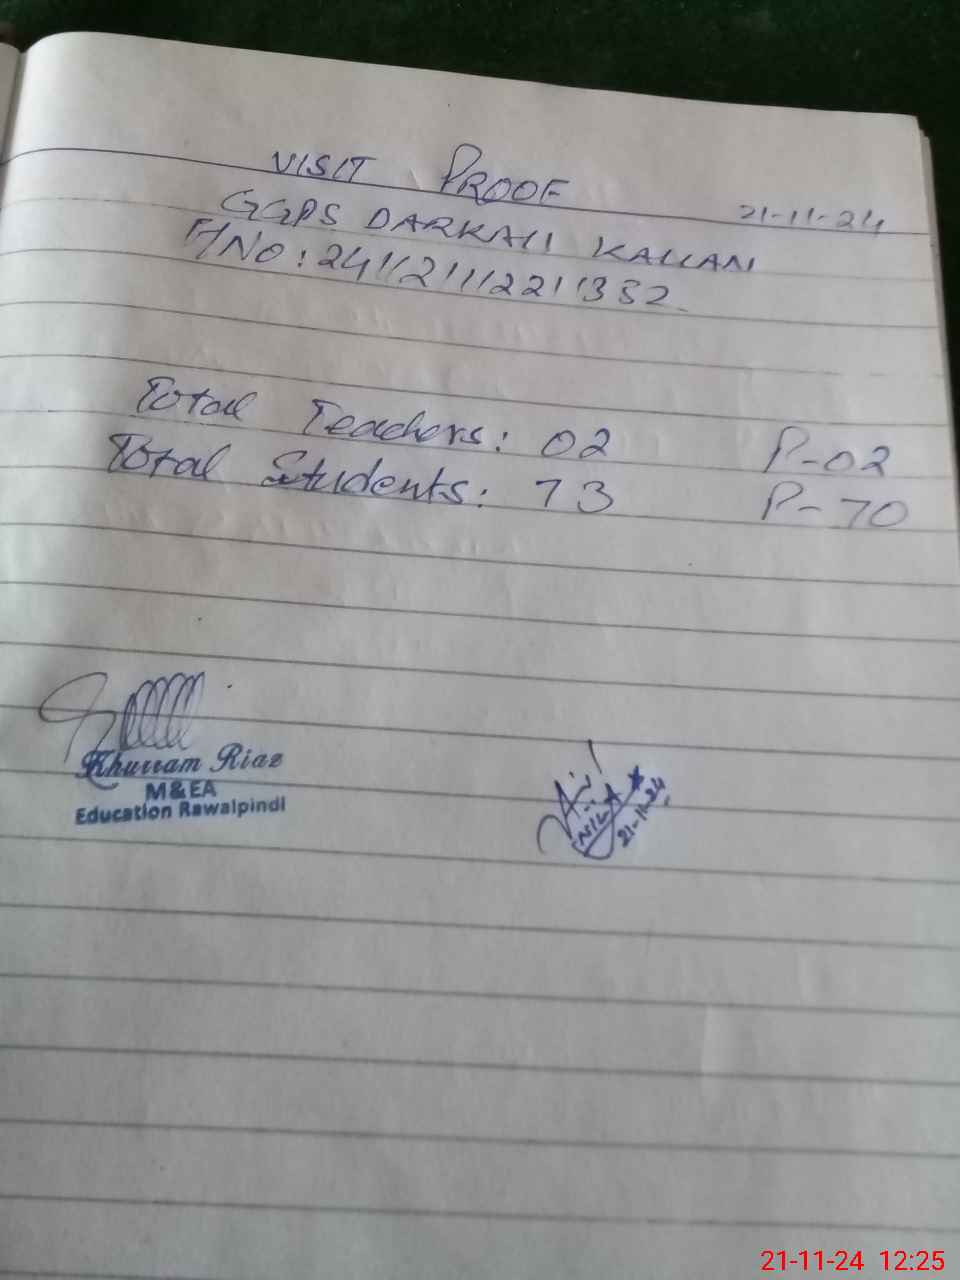 VISIT PROOF
21-11-24
GGPS DARKALI KALLAN
Total Teachers: 02 P-02
Total Students: 73 P-70
Khurram Riaz
M&EA
Education Rawalpindi
21-11-24
21-11-24 12:25